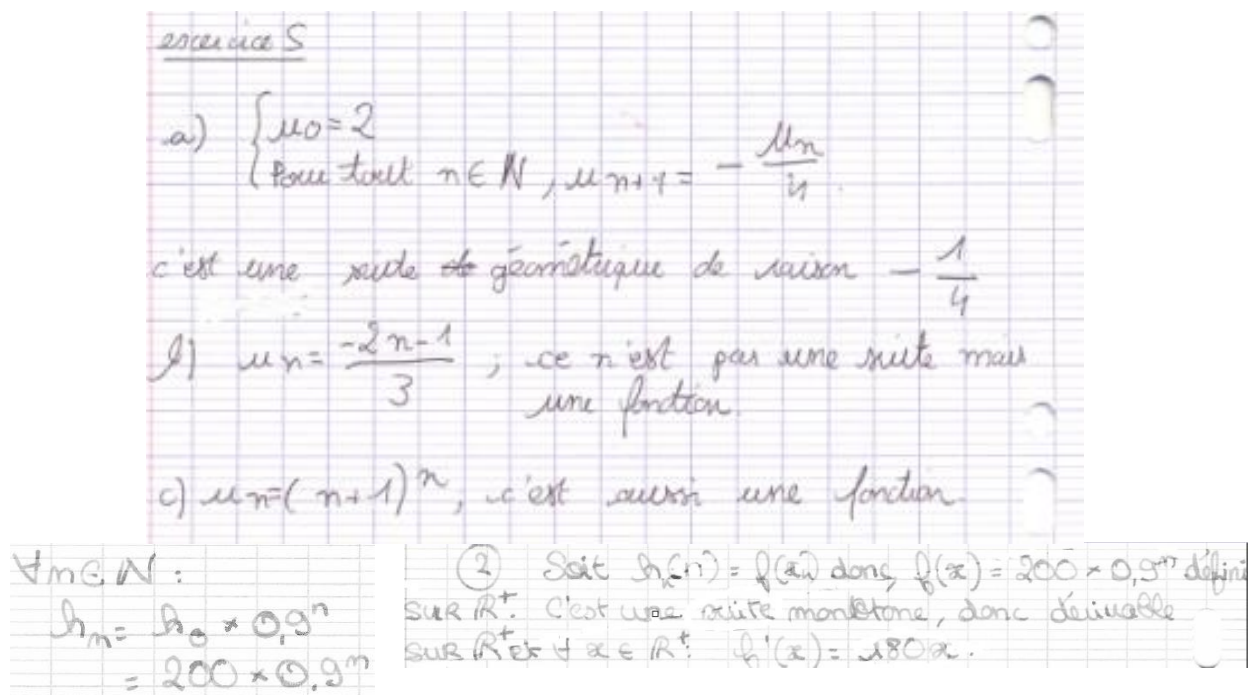 exercice 5
a) { u0 = 2
Pour tout n ∈ ℕ, un+1 = - un/4
c'est une suite géométrique de raison - 1/4
b) un = (-2n-1)/3 ; ce n'est pas une suite mais
une fonction.
c) un = (n+1)^n, c'est aussi une fonction.
∀n ∈ ℕ :
hn = h0 × 0,9^n
= 200 × 0,9^n
② Soit = f(x) donc f(x) = 200 × 0,9^n défini
sur ℝ+. C'est une suite monotone, donc dérivable
sur ℝ+ et ∀ x ∈ ℝ+ : h'(x) = 180x.